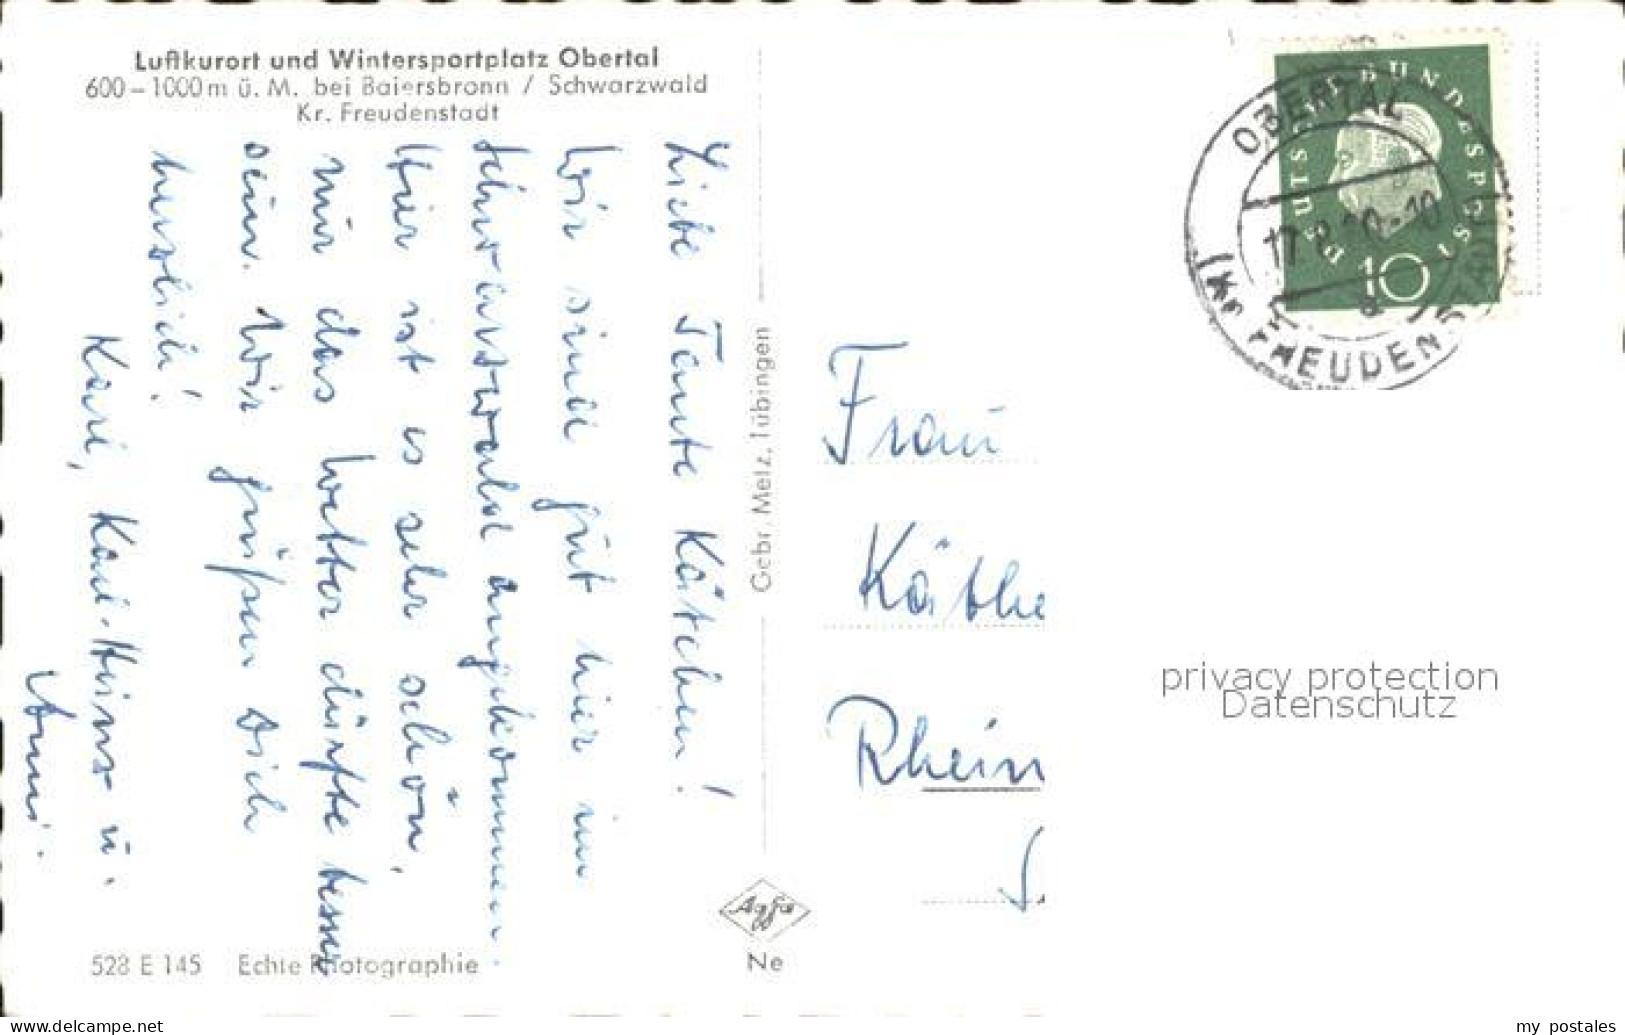 Luftkurort und Wintersportplatz Obertal
600–1000 m ü. M. bei Baiersbronn / Schwarzwald
Kr. Freudenstadt
Liebe Tante Kätchen!
Wir sind gut hier im
Schwarzwald angekommen.
Hier ist es sehr schön,
nur das Wetter dürfte besser
sein. Wir grüßen Dich
herzlich!
Karl-Heinz u.
Anni.
Gebr. Metz, Tübingen
Agfa
528 E 145 Echte Photographie
Ne
DEUTSCHE BUNDESPOST
10
OBERTAL
(Kr. FREUDENSTADT)
Frau
Käthe
Rhein
privacy protection
Datenschutz
www.delcampe.net
my_postales